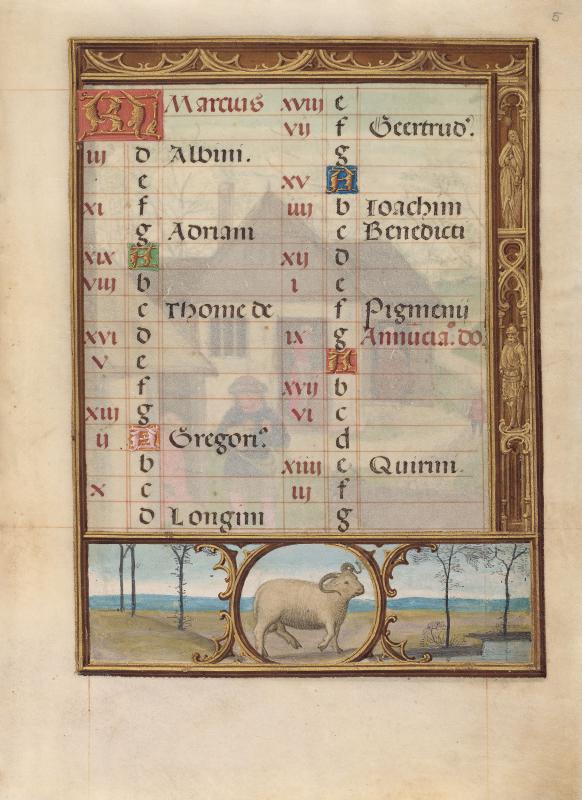 5
KL Marcius
iij d Albini.
e
xi f
g Adriani
xix A
viij b
c Thome de
xvi d
v e
f
xiij g
ij A Gregoriꝰ.
b
x c
d Longini
xviij e
vij f Geertrudꝭ.
g
xv A
iiij b Ioachim
c Benedicti
xij d
i e
f Pigmenij
ix g Annūciaᵒ. do
A
xvij b
vi c
d
xiiij e Quirini.
iij f
g